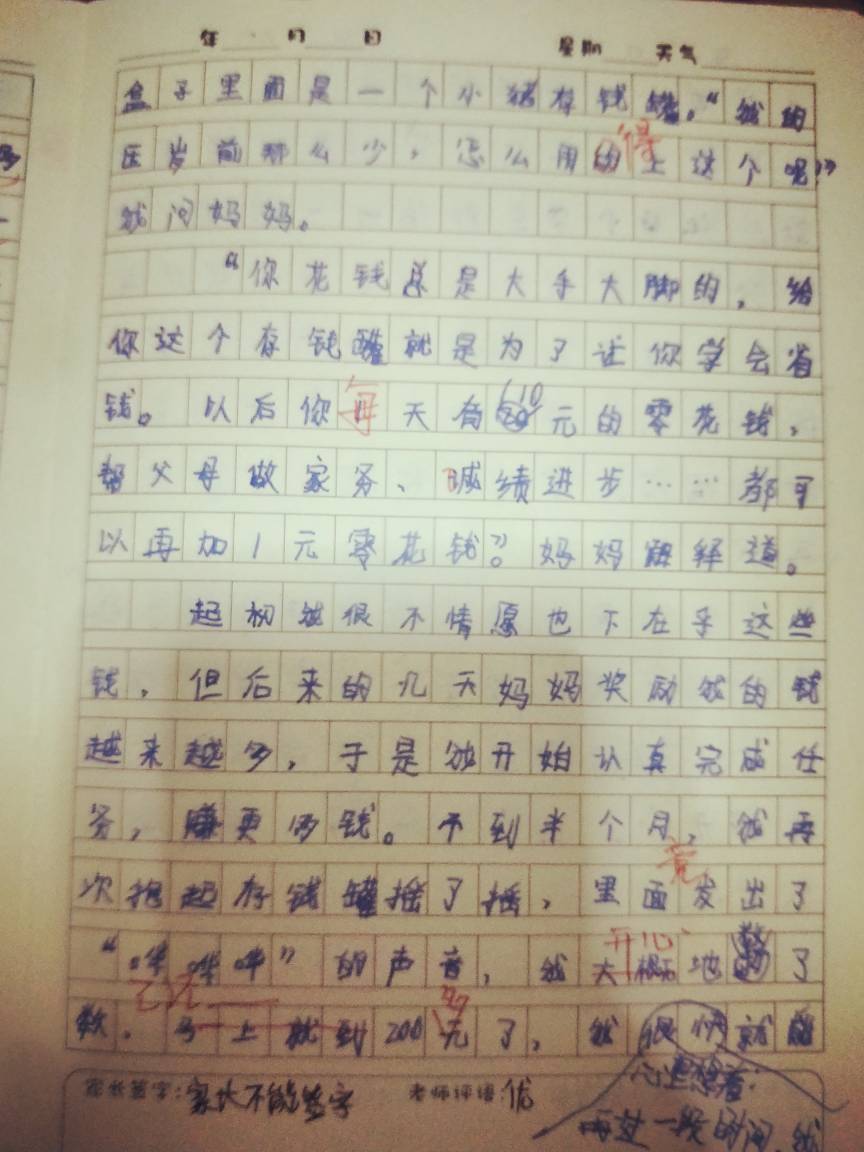 年 月 日 星期 天气
盒子里面是一个小猪存钱罐。“我的
压岁前那么少，怎么用的得上这个呢”
我问妈妈。
“你花钱总是大手大脚的，给
你这个存钱罐就是为了让你学会省
钱。以后你每天有10元的零花钱，
帮父母做家务、成绩进步……都可
以再加1元零花钱”。妈妈解释道。
起初我很不情愿也不在乎这些
钱，但后来的几天妈妈奖励我的钱
越来越多，于是我开始认真完成任
务，赚更多钱。不到半个月，我再
竟
次抱起存钱罐摇了摇，里面发出了
开心
“哗哗哗”的声音，我大概地数了
已经 多
数.马上就到200元了，我很快就能
家长签字：家长不能签字 老师评语：优
心里想着：
再过一段时间，我